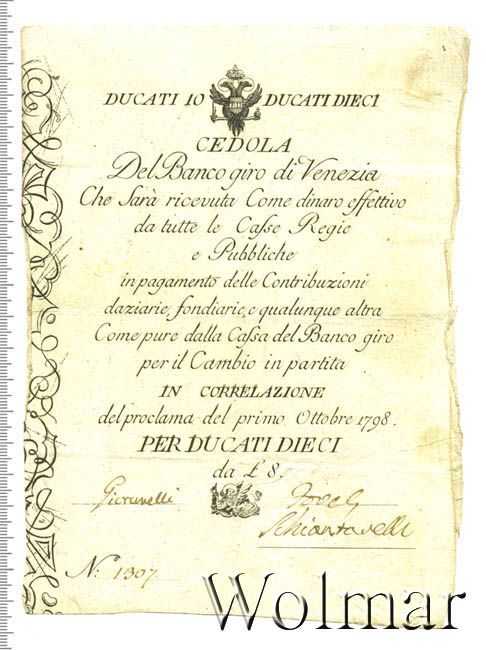 DUCATI 10 DUCATI DIECI
CEDOLA
Del Banco giro di Venezia
Che Sarà ricevuta Come dinaro effettivo
da tutte le Casse Regie
e Pubbliche
in pagamento delle Contribuzioni
daziarie, fondiarie, e qualunque altra
Come pure dalla Cassa del Banco giro
per il Cambio in partita
IN CORRELAZIONE
del proclama del primo Ottobre 1798.
PER DUCATI DIECI
da £ 8.
N. 1307
Wolmar